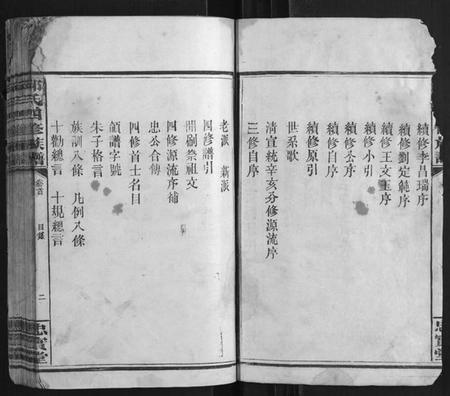 續修李昌瑞序
續修劉定範序
續修王文玉序
續修小引
續修公序
續修自序
續修原引
世系歌
清宣統辛亥分修源流序
三修自序
老派 新派
四修譜引
開剷祭祖文
四修源流序補
忠公合傳
四修首士名目
頒譜字號
朱子格言
族訓八條 凡例八條
十勸總言 十規總言
氏四修族譜
卷首
目錄
二
忠實堂
忠實堂